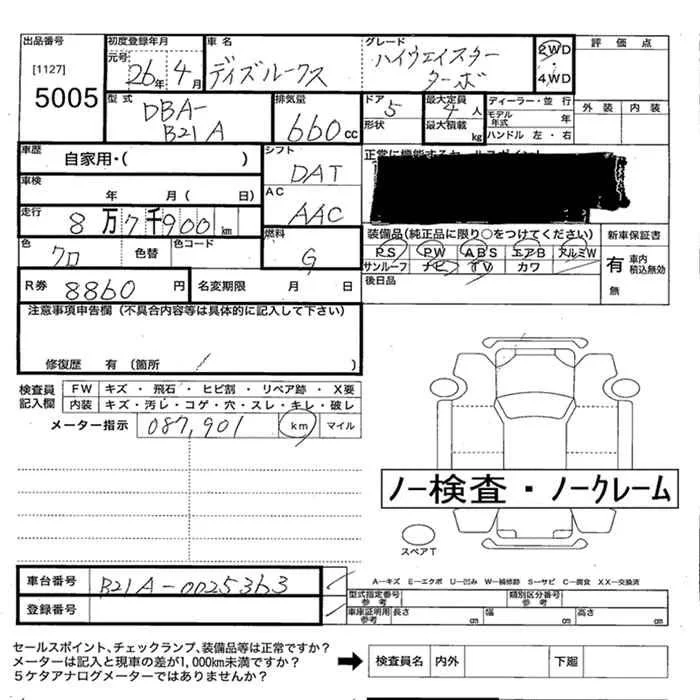 出品番号 初度登録年月 車名 グレード 評価点
[1127] 元号 26年 4月 ディズルークス ハイウェイスター ターボ 2WD
5005 4WD
型式 DBA-B21A 排気量 660cc ドア 5 最大定員 4人 ディーラー・並行 外装 内装
形状 最大積載 kg モデル年式 年
ハンドル 左・右
車歴 自家用・( ) シフト DAT 正常に機能するセールスポイント
車検 年 月( 日) AC AAC
走行 8万7千900km 燃料 G 装備品(純正品に限り○をつけてください) 新車保証書
色 クロ 色替 色コード PS PW ABS エアB アルミW 有 車内積込無効
サンルーフ ナビ TV カワ
R券 8860円 名変期限 月 日 後日品 無
注意事項申告欄(不具合内容等は具体的に記入して下さい)
修復歴 有(箇所 )
検査員記入欄 FW キズ・飛石・ヒビ割・リペア跡・X要
内装 キズ・汚レ・コゲ・穴・スレ・キレ・破レ
メーター指示 087,901 km マイル
ノー検査・ノークレーム
スペアT
車台番号 B21A-0025363 A―キズ E―エクボ U―凹み W―補修跡 S―サビ C―腐食 XX―交換済
型式指定番号 参考 類別区分番号 参考
登録番号 車庫証明用参考 長さ cm 幅 cm 高さ cm
セールスポイント、チェックランプ、装備品等は正常ですか?
メーターは記入と現車の差が1,000km未満ですか? 検査員名 内外 下廻
5ケタアナログメーターではありませんか?